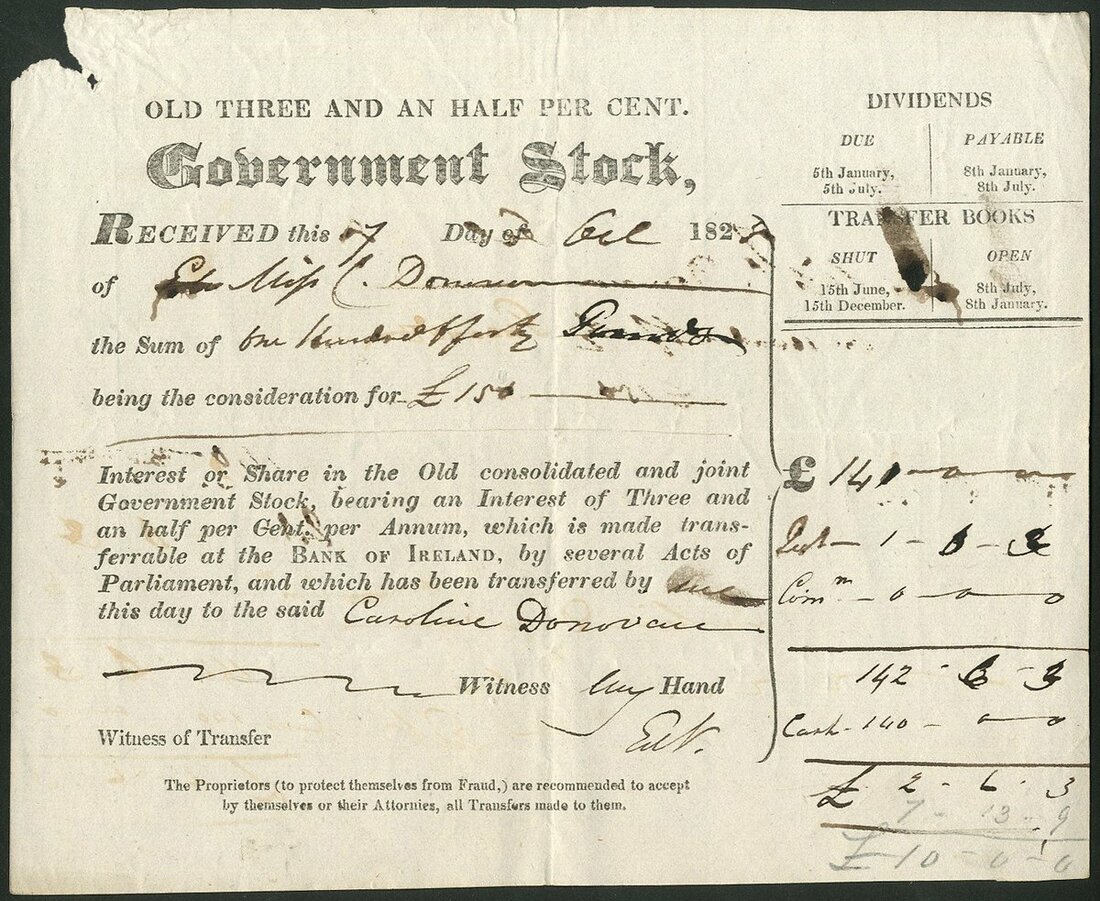 OLD THREE AND AN HALF PER CENT.
Government Stock,
RECEIVED this 7 Day of Oct 182
of Miss C. Donovan
the Sum of One Hundred & forty Pounds
being the consideration for £150
Interest or Share in the Old consolidated and joint
Government Stock, bearing an Interest of Three and
an half per Cent. per Annum, which is made trans-
ferrable at the BANK OF IRELAND, by several Acts of
Parliament, and which has been transferred by me
this day to the said Caroline Donovan
Witness my Hand
Witness of Transfer
The Proprietors (to protect themselves from Fraud,) are recommended to accept
by themselves or their Attornies, all Transfers made to them.
DIVIDENDS
DUE PAYABLE
5th January, 8th January,
5th July. 8th July.
TRANSFER BOOKS
SHUT OPEN
15th June, 8th July,
15th December. 8th January.
£ 141 - 0 - 0
1 - 6 - 3
Comn - 0 - 0 - 0
142 - 6 - 3
Cash - 140 - 0 - 0
£ 2 - 6 - 3
7 - 13 - 9
£10 - 0 - 0